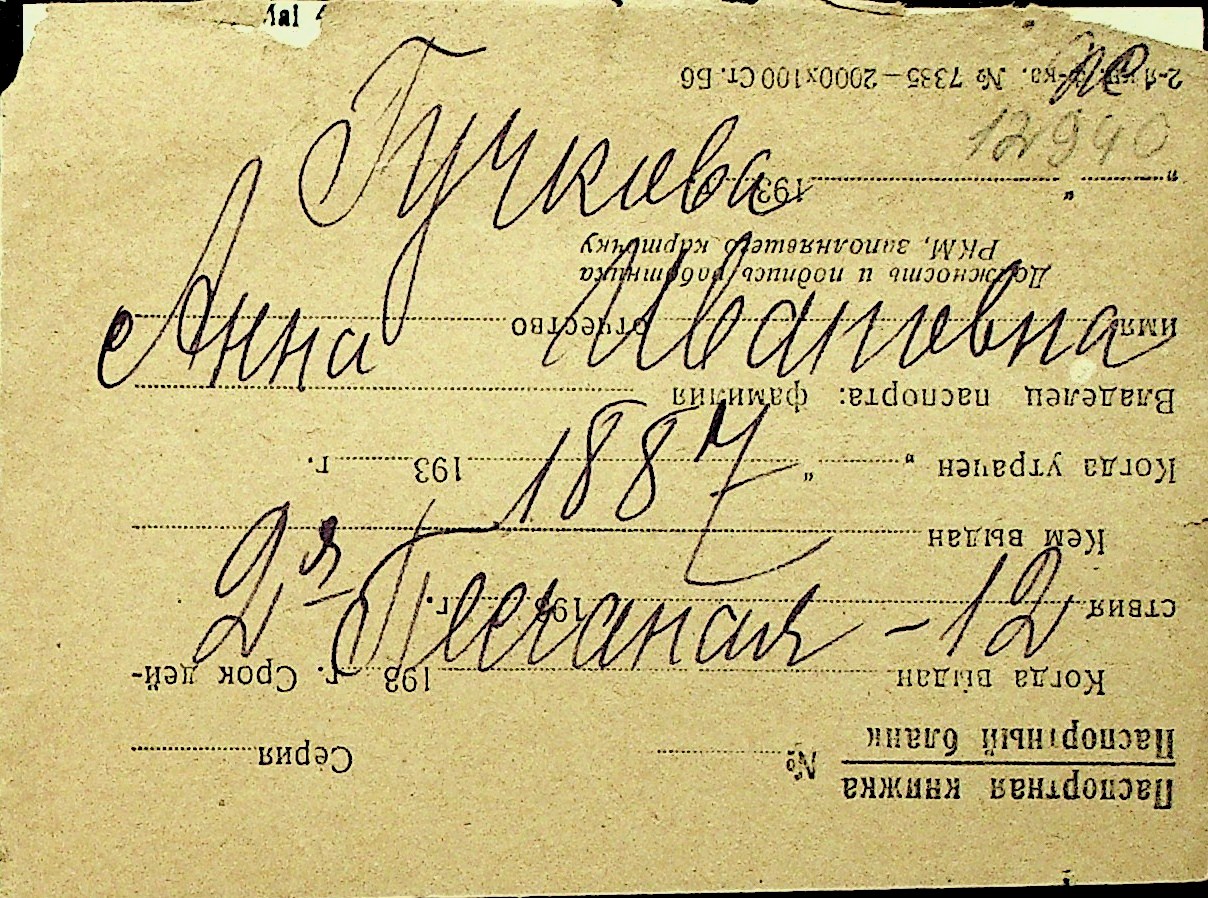 Гучкова
Анна Ивановна
1887
2я-Песчаная-12
12940
Паспортная книжка
Паспортный бланк
№ Серия
Когда выдан 193 г. Срок дей-
ствия 193 г.
Кем выдан
Когда утрачен „ “ 193 г.
Владелец паспорта: фамилия
имя отчество
Должность и подпись работника
РКМ, заполнявшего карточку
„ “ 193
№ 7335—2000х100 Ст. Б6